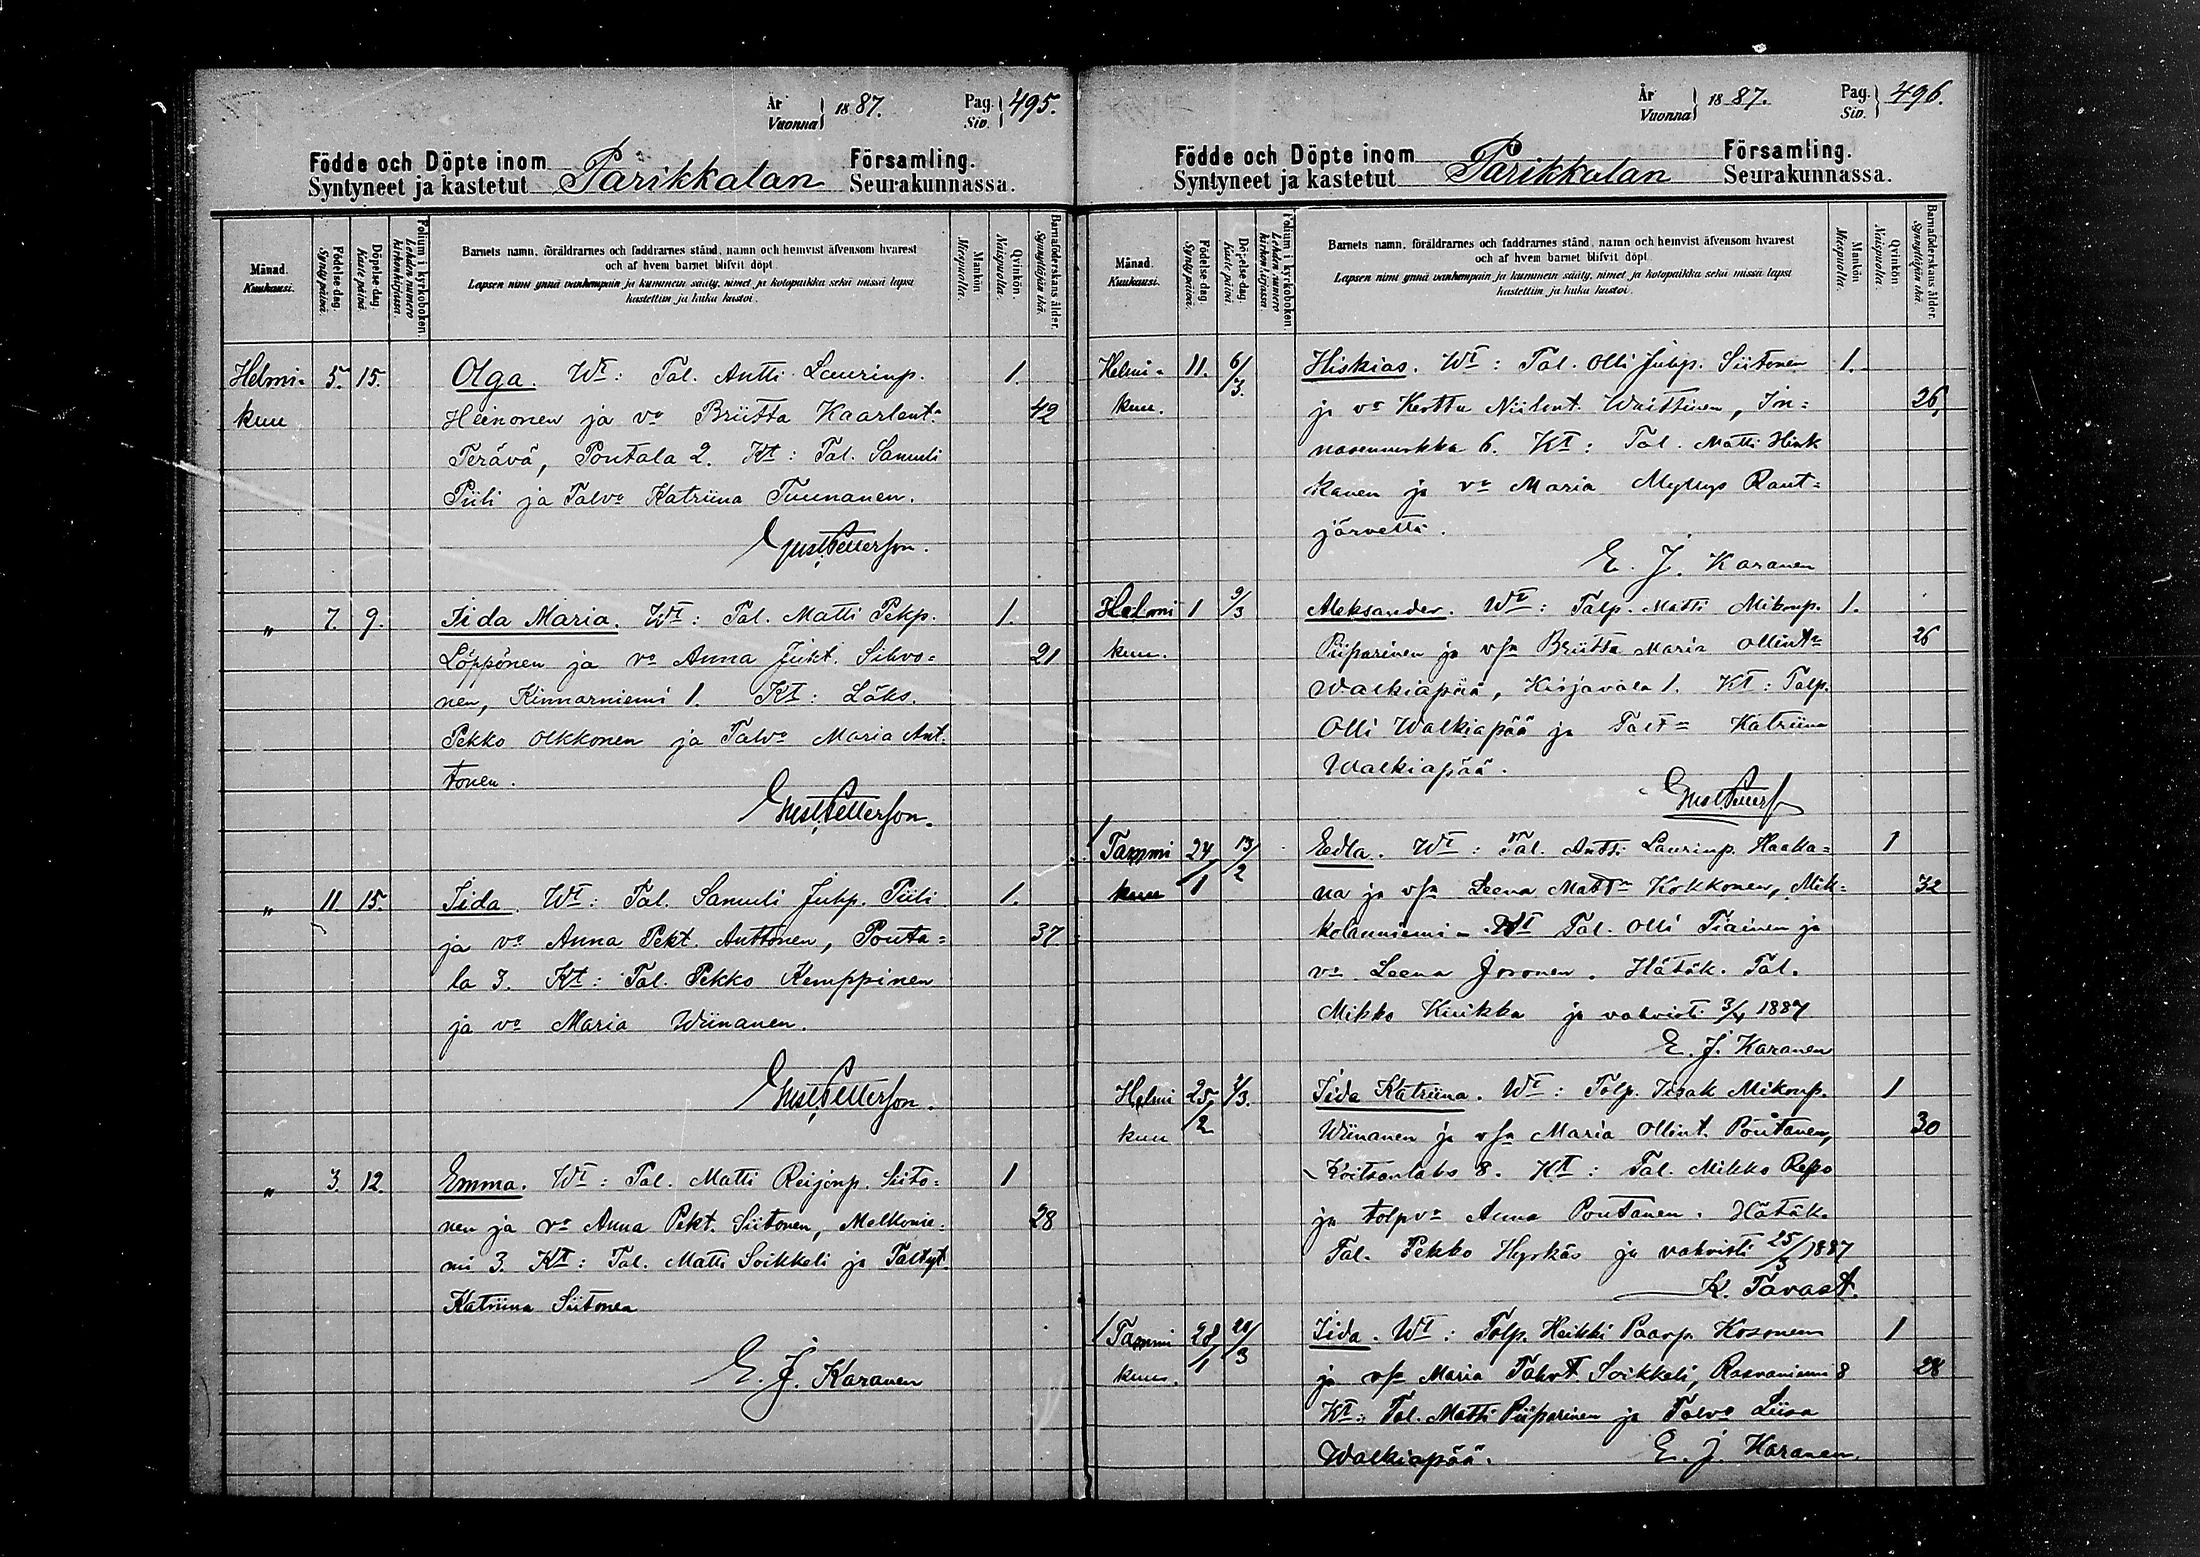 År
Vuonna } 1887. Pag. Siv. } 495.
Födde och Döpte inom Parikkalan Församling.
Syntyneet ja kastetut Seurakunnassa.
Månad. Kuukausi.
Födelse-dag. Syntymäpäivä.
Döpelse-dag. Kastepäivä.
Folium i kyrkoboken. Lehden numero kirkonkirjassa.
Barnets namn, föräldrarnes och faddrarnes stånd, namn och hemvist äfvensom hvarest
och af hvem barnet blifvit döpt.
Lapsen nimi ynnä vanhempain ja kummein sääty, nimet ja kotopaikka sekä missä lapsi
kastettiin ja kuka kastoi.
Mankön Miespuolia.
Qvinkön. Naispuolia.
Barnaföderskans ålder. Synnyttäjän ikä.
Helmi- 5. 15. Olga. Wt: Tal. Antti Laurinp. 1.
kuu Heinonen ja vo Briitta Kaarlent. 42
Terävä, Poutala 2. Kt: Tal. Samuli
Piili ja Talvo Katriina Tuunanen.
Gust. Petterson.
„ 7. 9. Iida Maria. Wt: Tal. Matti Pekp. 1.
Löppönen ja vo Anna Juht. Sihvo= 21
nen, Kinnarniemi 1. Kt: Läks.
Pekko Olkkonen ja Talvo Maria Ant.
tonen.
Gust. Petterson.
„ 11. 15. Iida. Wt: Tal. Samuli Juhp. Piili 1.
ja vo Anna Pekt. Anttonen, Pouta= 37
la 3. Kt: Tal. Pekko Kemppinen
ja vo Maria Wiinanen.
Gust. Petterson.
„ 3. 12. Emma. Wt: Tal. Matti Reijonp. Siito= 1
nen ja vo Anna Pekt. Siitonen, Melkonie= 28
mi 3. Kt: Tal. Matti Soikkeli ja Taltyt.
Katriina Siitonen
E. J. Karanen
År
Vuonna } 1887. Pag. Siv. } 496.
Födde och Döpte inom Parikkalan Församling.
Syntyneet ja kastetut Seurakunnassa.
Månad. Kuukausi.
Födelse-dag. Syntymäpäivä.
Döpelse-dag. Kastepäivä.
Folium i kyrkoboken. Lehden numero kirkonkirjassa.
Barnets namn, föräldrarnes och faddrarnes stånd, namn och hemvist äfvensom hvarest
och af hvem barnet blifvit döpt.
Lapsen nimi ynnä vanhempain ja kummein sääty, nimet ja kotopaikka sekä missä lapsi
kastettiin ja kuka kastoi.
Mankön Miespuolia.
Qvinkön Naispuolia.
Barnaföderskans ålder. Synnyttäjän ikä.
Helmi- 11. 6/3. Hiskias. Wt: Tal. Olli Juhp. Siitonen 1.
kuu. ja vo Kerttu Niilont. Waittinen, In= 26
nasennurkka 6. Kt: Tal. Matti Hink
kanen ja vo Maria Myllys Raut=
järveltä.
E. J. Karanen
Helmi 1 9/3 Aleksander. Wt: Talp. Matti Mikonp. 1.
kuu. Piiparinen ja vsa Briitta Maria Ollint= 26
Walkiapää, Kirjavala 1. Kt: Talp.
Olli Walkiapää ja Talt= Katriina
Walkiapää.
Gust. Petters
Tammi 24/1 13/2 Eedla. Wt: Tal. Antti Laurinp. Haaka= 1
kuu na ja vsa Leena Matt= Kokkonen, Mik= 32
kolanniemi - Kt Tal. Olli Tiainen ja
vo Leena Joronen. Hätäk. Tal.
Mikko Kuikka ja vahvisti 3/4 1887
E. J. Karanen
Helmi 25/2 1/3. Iida Katriina. Wt: Talp. Iisak Mikonp. 1
kuu Wiinanen ja vsa Maria Ollint. Poutanen, 30
Koitsanlahs 8. Kt: Tal. Mikko Repo
ja tolpvo Anna Poutanen. Hätäk.
Tal. Pekko Hyrkäs ja vahvisti 25/3 1887
K. Tavast.
Tammi 28/1 20/3 Iida. Wt: Tolp. Heikki Paavp. Kosonen 1
kuu. ja vsa Maria Tahvt Soikkeli, Rasvaniemi 8 28
Kt: Tal. Matti Piiparinen ja Talvo Liisa
Walkiapää. E. J. Karanen.